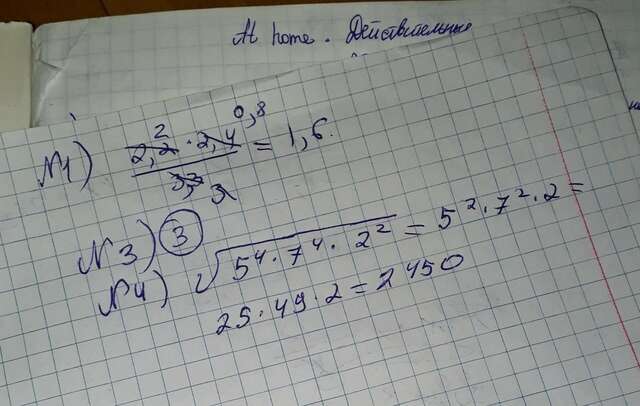 At home. Действительные
№1) 2,2 · 2,4 / 3,3 = 1,6.
2 0,8
3
№3) 3
№4) √5⁴ · 7⁴ · 2² = 5² · 7² · 2 =
25 · 49 · 2 = 2450